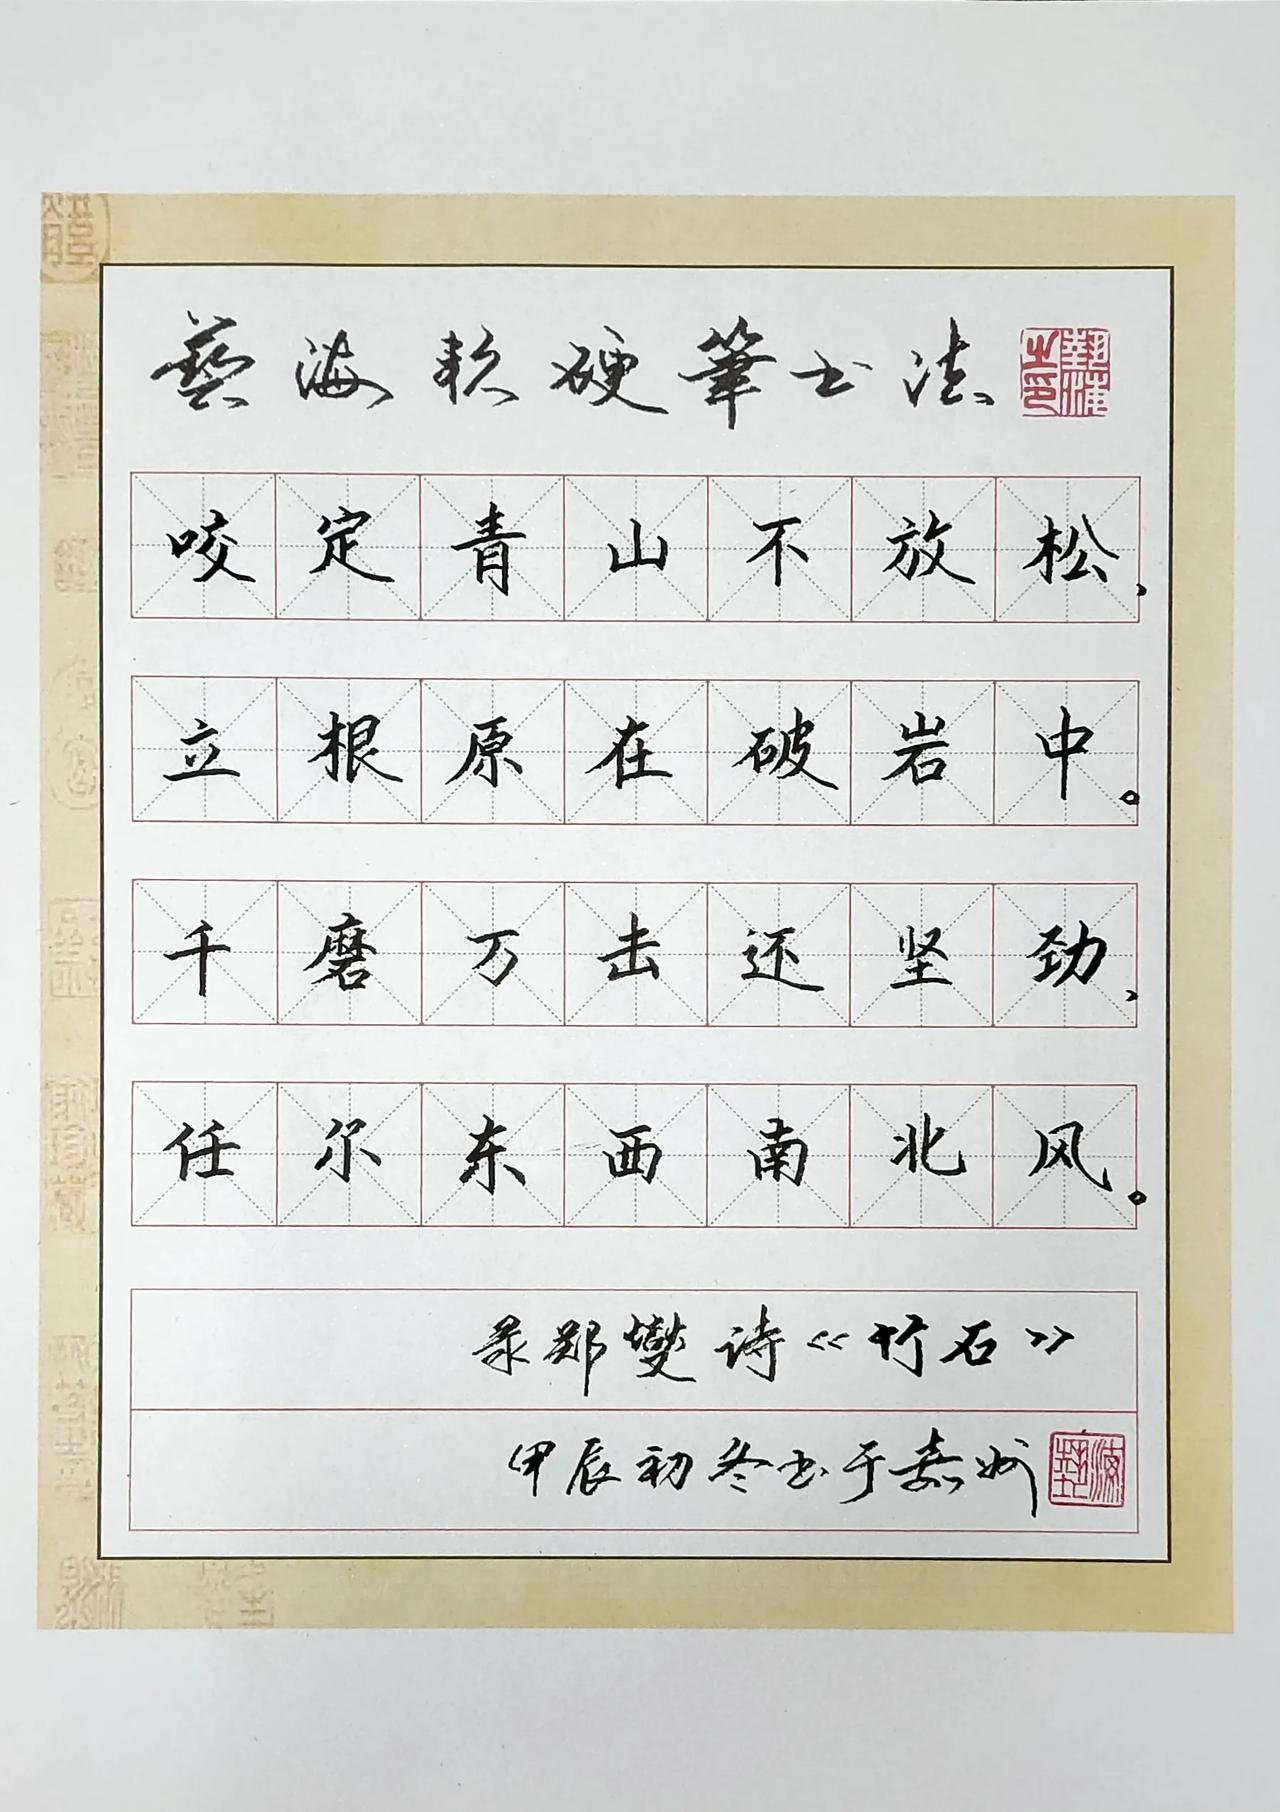 藝海软硬筆书法
咬定青山不放松，
立根原在破岩中。
千磨万击还坚劲，
任尔东西南北风。
录郑燮诗《竹石》
甲辰初冬书于嘉州